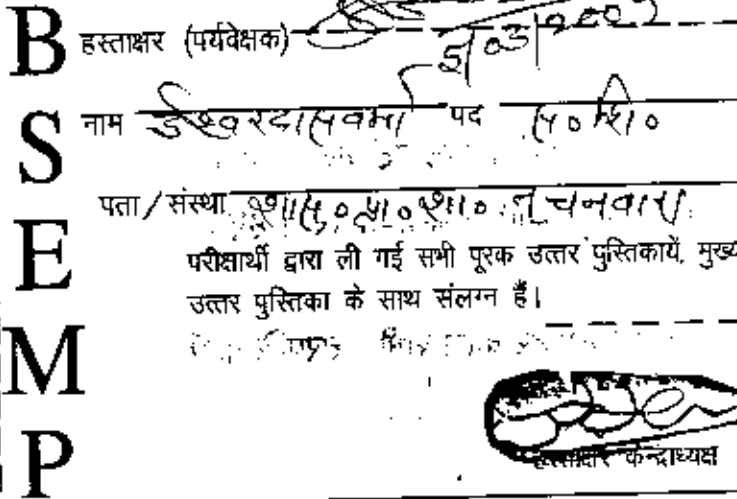 B
S
E
M
P
हस्ताक्षर (पर्यवेक्षक)
नाम ईश्वरदास वर्मा पद स० शि०
पता / संस्था शास० प्रा० शा०
परीक्षार्थी द्वारा ली गई सभी पूरक उत्तर पुस्तिकायें, मुख्य
उत्तर पुस्तिका के साथ संलग्न हैं।
हस्ताक्षर केन्द्राध्यक्ष